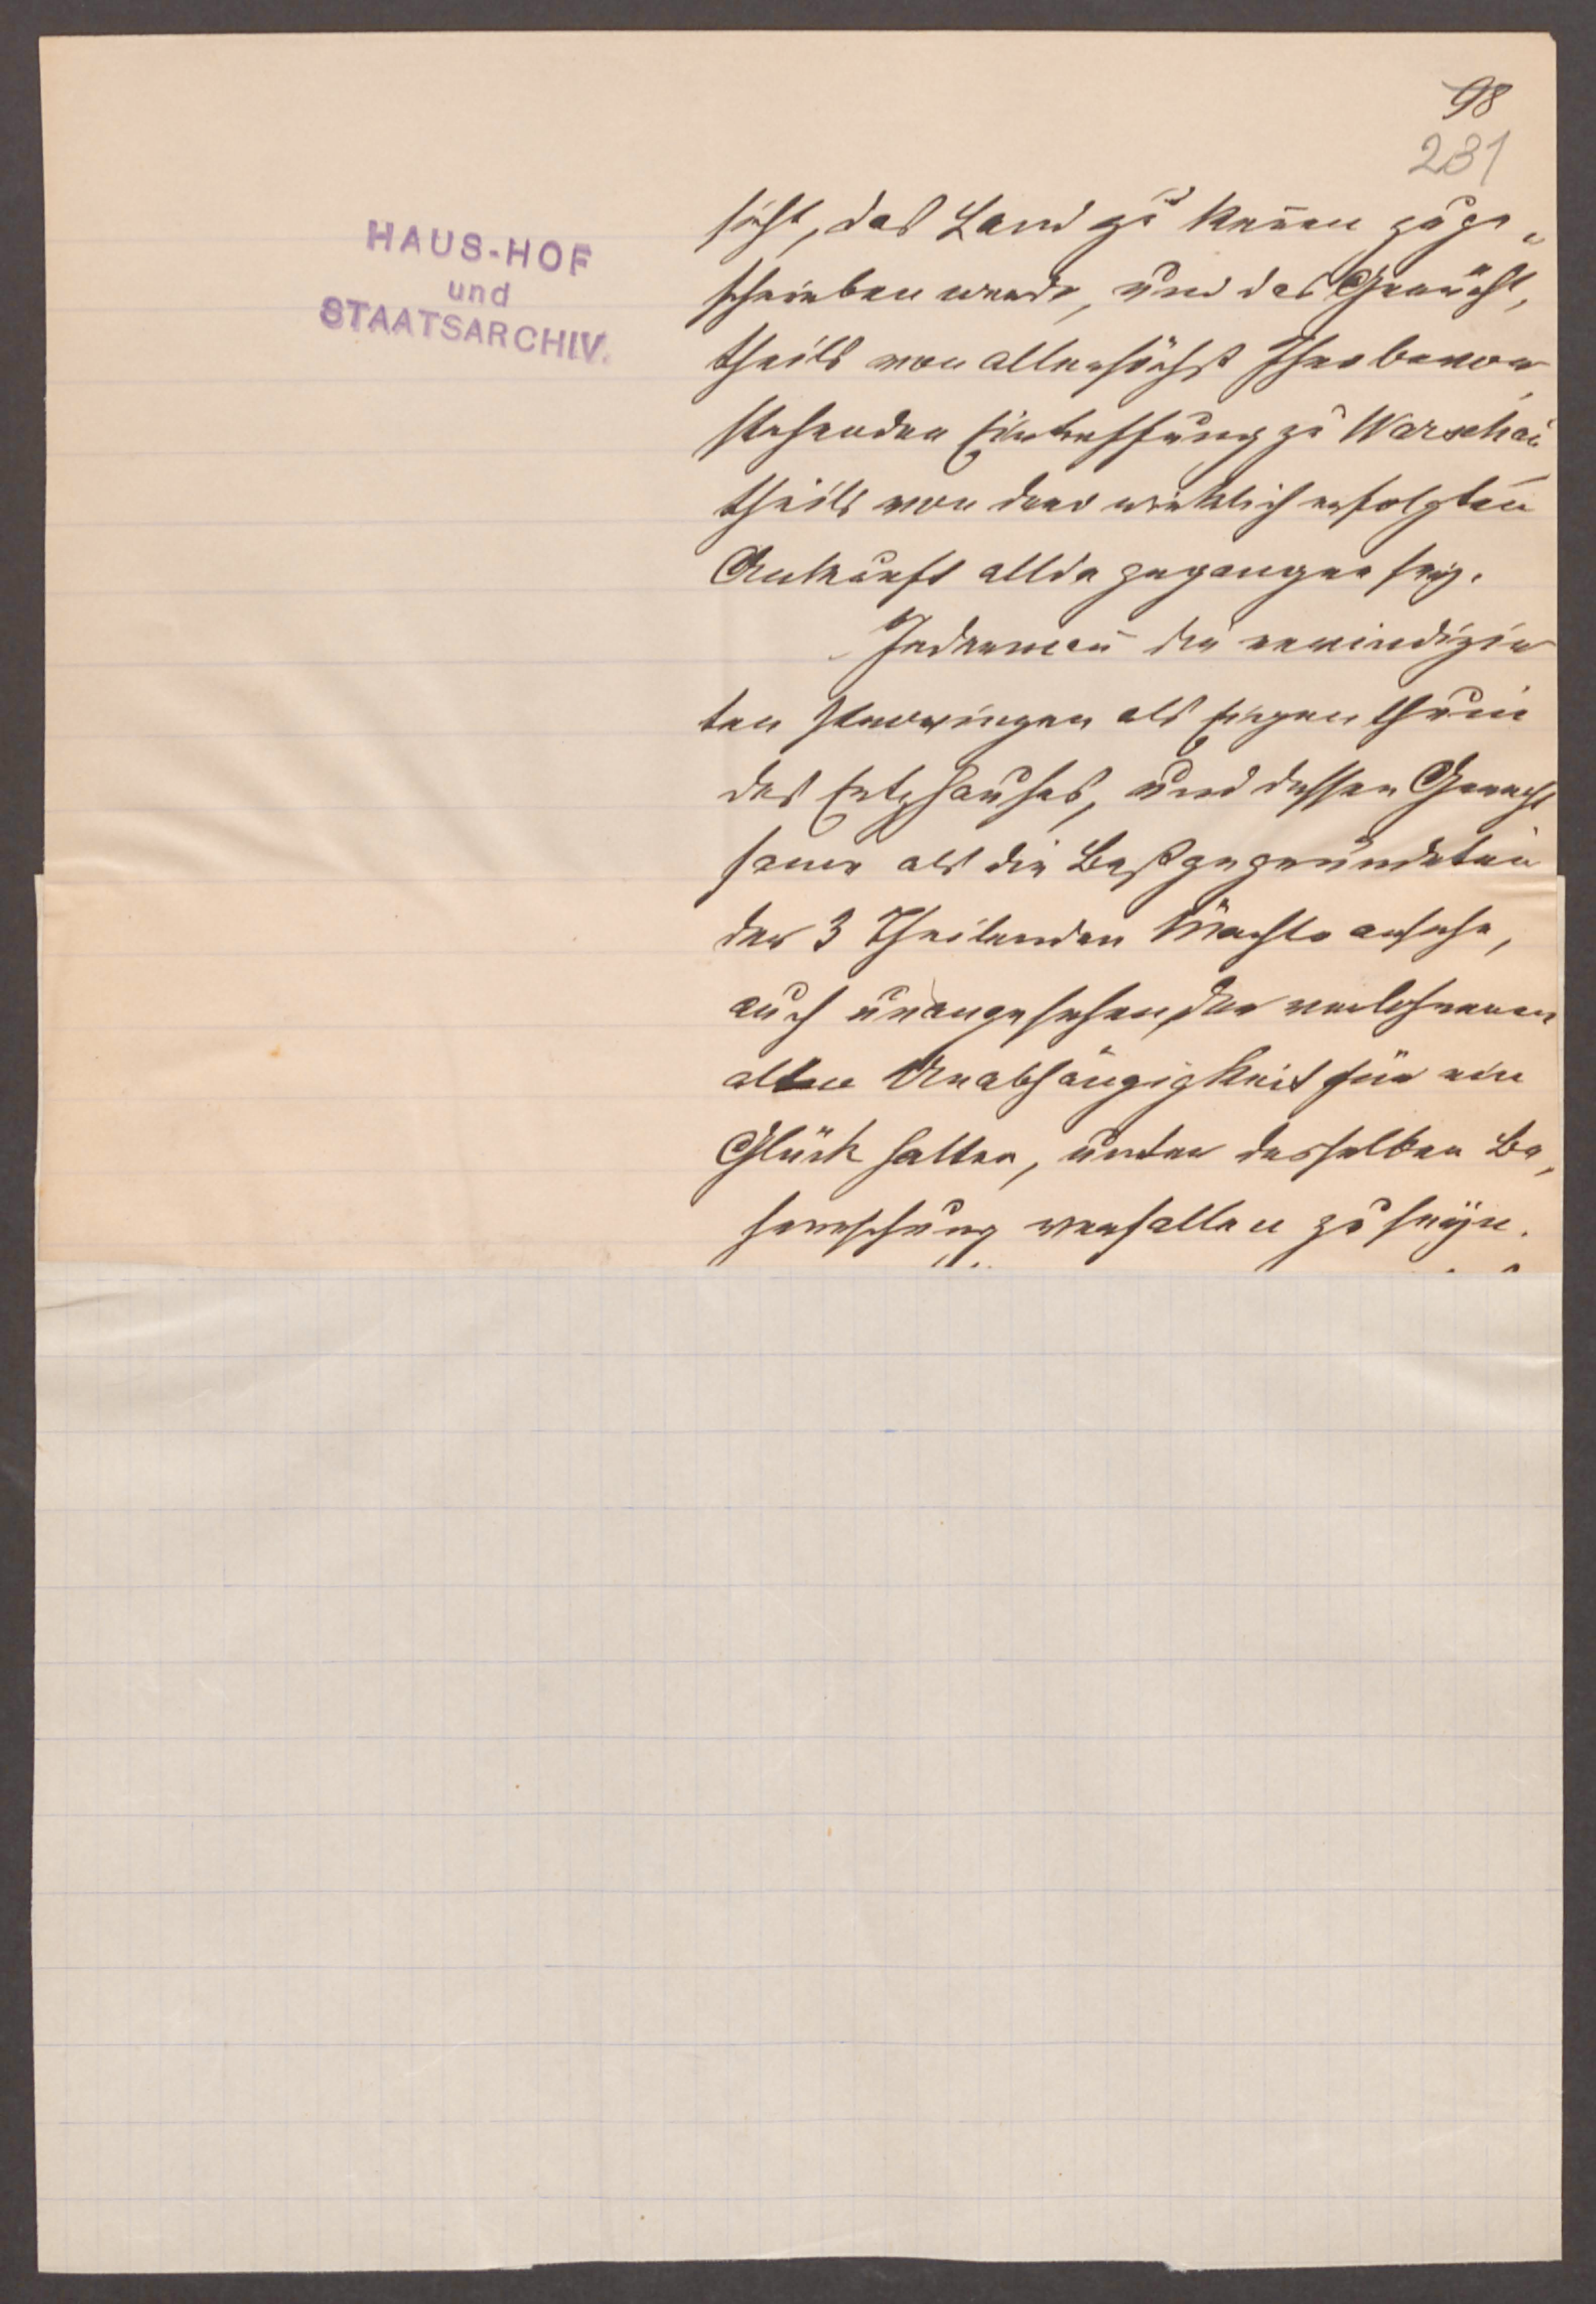 98
231
HAUS-HOF
und
STAATSARCHIV.
sicht, das Land zu kennen zuge„
schrieben werde, und das Gerücht,
theils von allerhöchst Ihro bevor
stehenden Eintreffung zu Warschau
theils von dero wirklich erfolgten
Ankunft allda gegangen sey.
Jedermañ die revindizir
ten Provinzen als Eigenthum
des Erzhauses, und dessen Gerecht
same als die Bestgegründeten
der 3 Theilenden Mächte ansehe,
auch unangesehen der verlohrenen
alten Unabhängigkeit für ein
Glück halten, unter desselben Be„
herrschung verfallen zu seyn.